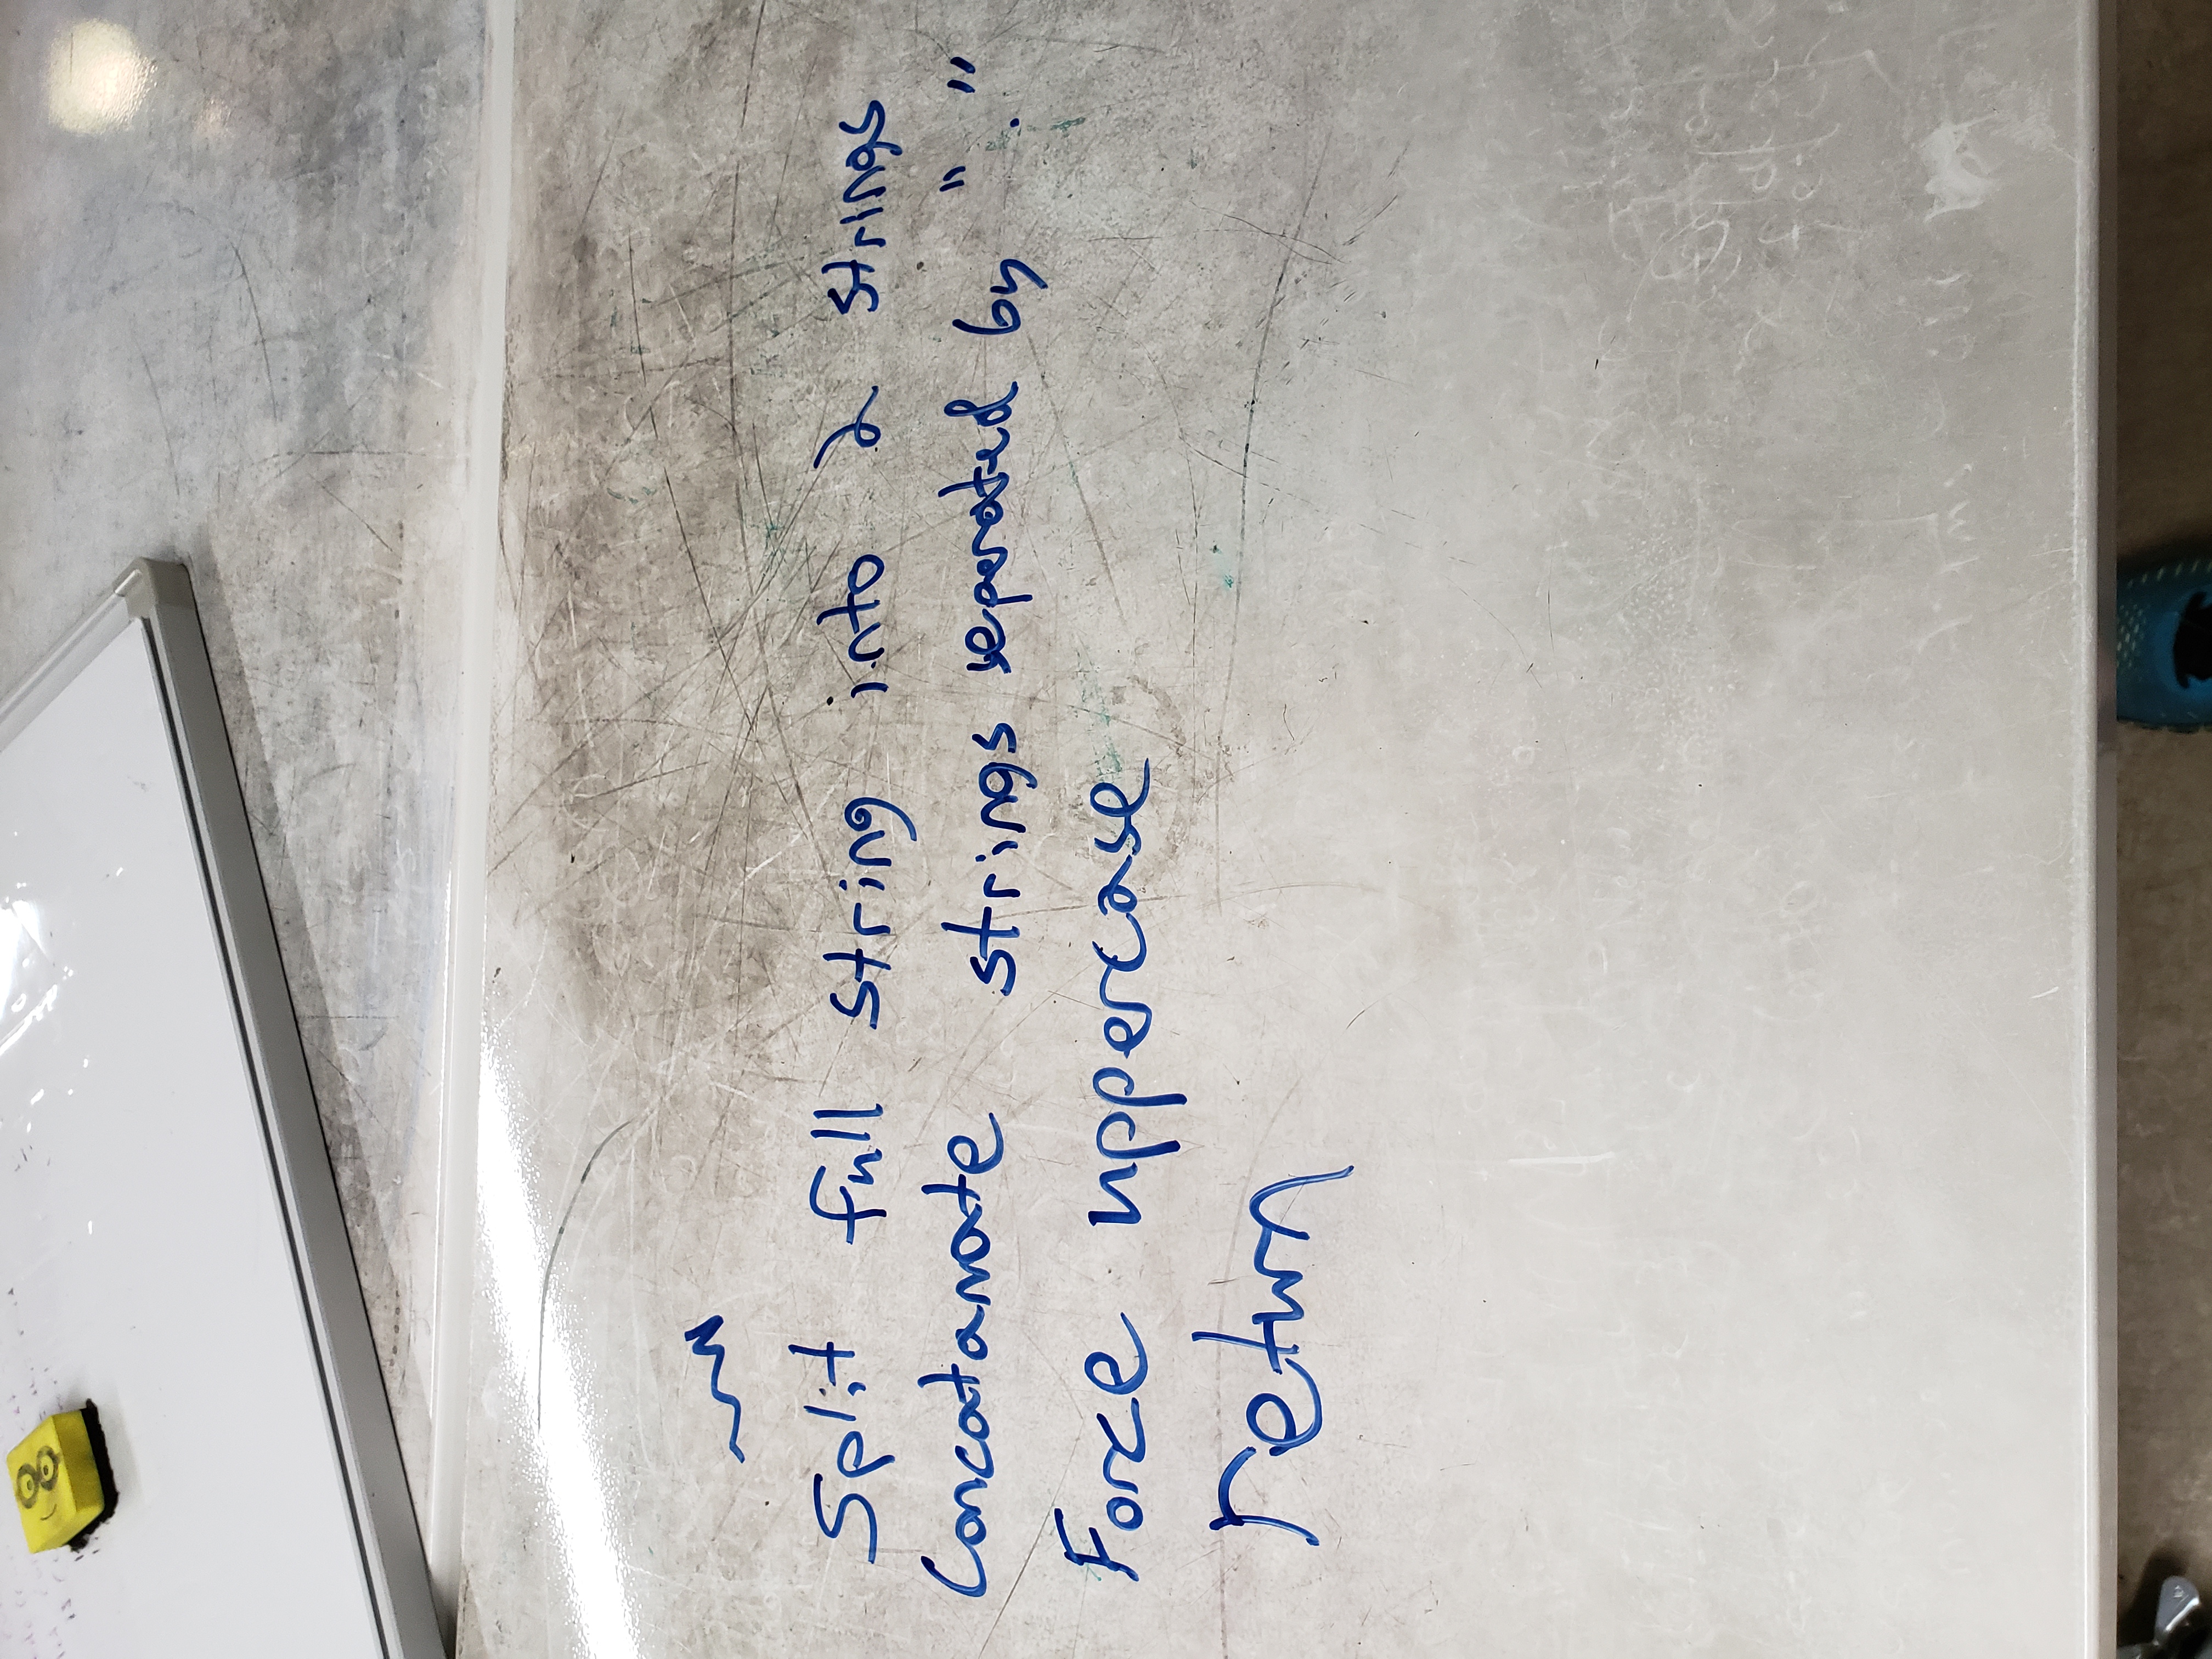 Split full string into 2 strings
Concatanate strings seperated by " . "
Force uppercase
return